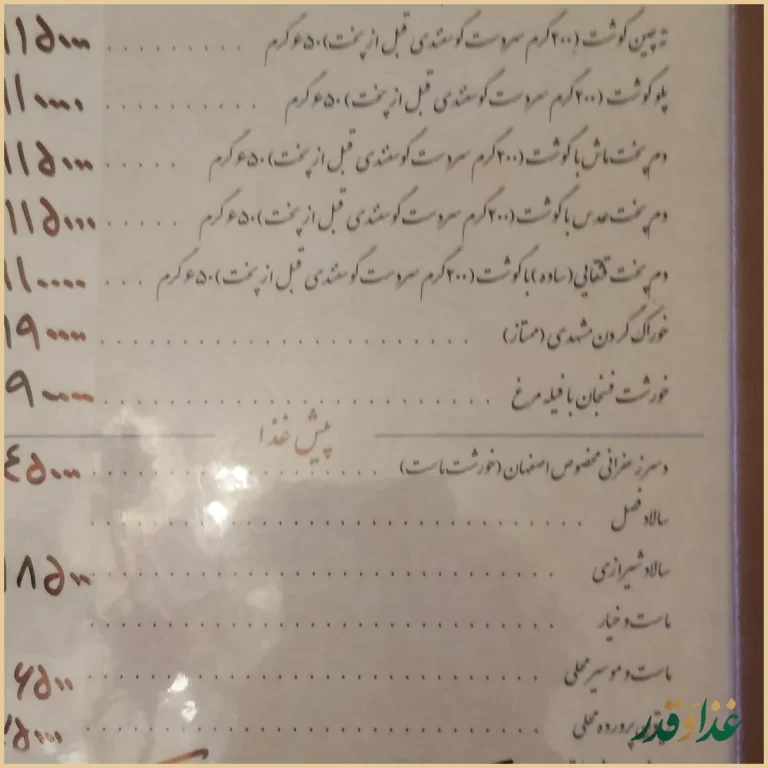 ته چین گوشت (۲۰۰گرم سردست گوسفندی قبل از پخت) ۶۵۰گرم .......... ۱۱۵۰۰۰
پلو گوشت (۲۰۰گرم سردست گوسفندی قبل از پخت) ۶۵۰گرم .......... ۱۱۰۰۰۰
دم پخت ماش با گوشت (۲۰۰گرم سردست گوسفندی قبل از پخت) ۶۵۰گرم ..... ۱۱۵۰۰۰
دم پخت عدس با گوشت (۲۰۰گرم سردست گوسفندی قبل از پخت) ۶۵۰گرم ..... ۱۱۵۰۰۰
دم پخت قشقایی (ساده) با گوشت (۲۰۰گرم سردست گوسفندی قبل از پخت) ۶۵۰گرم ... ۱۱۰۰۰۰
خوراک گردن مشهدی (ممتاز) .......... ۱۹۰۰۰۰
خورشت فسنجان با فیله مرغ .......... ۹۰۰۰۰
پیش غذا
دسر زعفرانی مخصوص اصفهان (خورشت ماست) .......... ۴۵۰۰۰
سالاد فصل ..........
سالاد شیرازی .......... ۱۸۵۰۰
ماست و خیار ..........
ماست و موسیر محلی .......... ۶۵۰۰
پرورده محلی .......... ۵۰۰۰
غذا و قدر